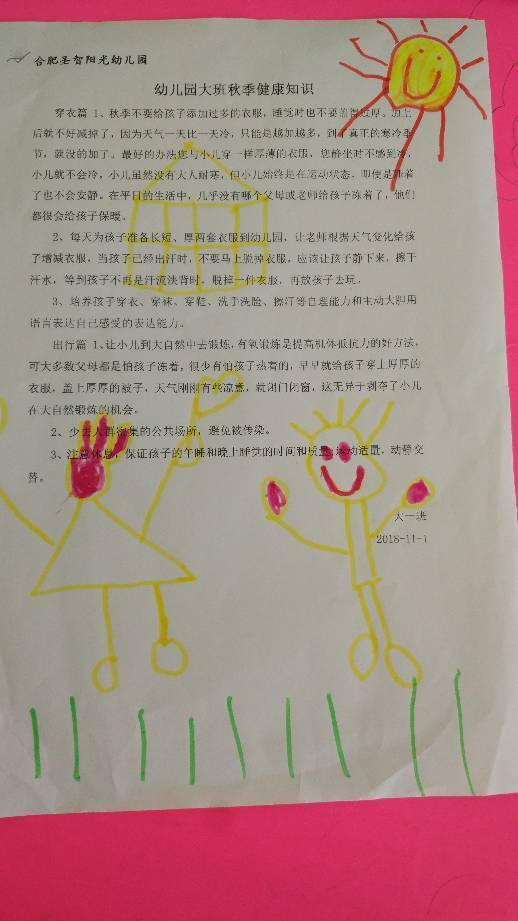 合肥圣智阳光幼儿园
幼儿园大班秋季健康知识
穿衣篇 1、秋季不要给孩子添加过多的衣服，睡觉时也不要盖得过厚。加上
后就不好减掉了，因为天气一天比一天冷，只能是越加越多，到了真正的寒冷季
节，就没的加了。最好的办法您与小儿穿一样厚薄的衣服，您静坐时不感到冷，
小儿就不会冷，小儿虽然没有大人耐寒，但小儿始终是在运动状态，即使是睡着
了也不会安静。在平日的生活中，几乎没有哪个父母或老师给孩子冻着了，他们
都很会给孩子保暖。
2、每天为孩子准备长短、厚两套衣服到幼儿园，让老师根据天气变化给孩
子增减衣服，当孩子已经出汗时，不要马上脱掉衣服，应该让孩子静下来，擦干
汗水，等到孩子不再是汗流浃背时，脱掉一件衣服，再放孩子去玩。
3、培养孩子穿衣、穿袜、穿鞋、洗手洗脸、擦汗等自理能力和主动大胆用
语言表达自己感受的表达能力。
出行篇 1、让小儿到大自然中去锻炼，有氧锻炼是提高机体抵抗力的好方法，
可大多数父母都是怕孩子冻着，很少有怕孩子热着的，早早就给孩子穿上厚厚的
衣服，盖上厚厚的被子，天气刚刚有些凉意，就闭门闭窗，这无异于剥夺了小儿
在大自然锻炼的机会。
2、少去人群密集的公共场所，避免被传染。
3、注意休息，保证孩子的午睡和晚上睡觉的时间和质量，运动适量，动静交
替。
大一班
2018-11-1